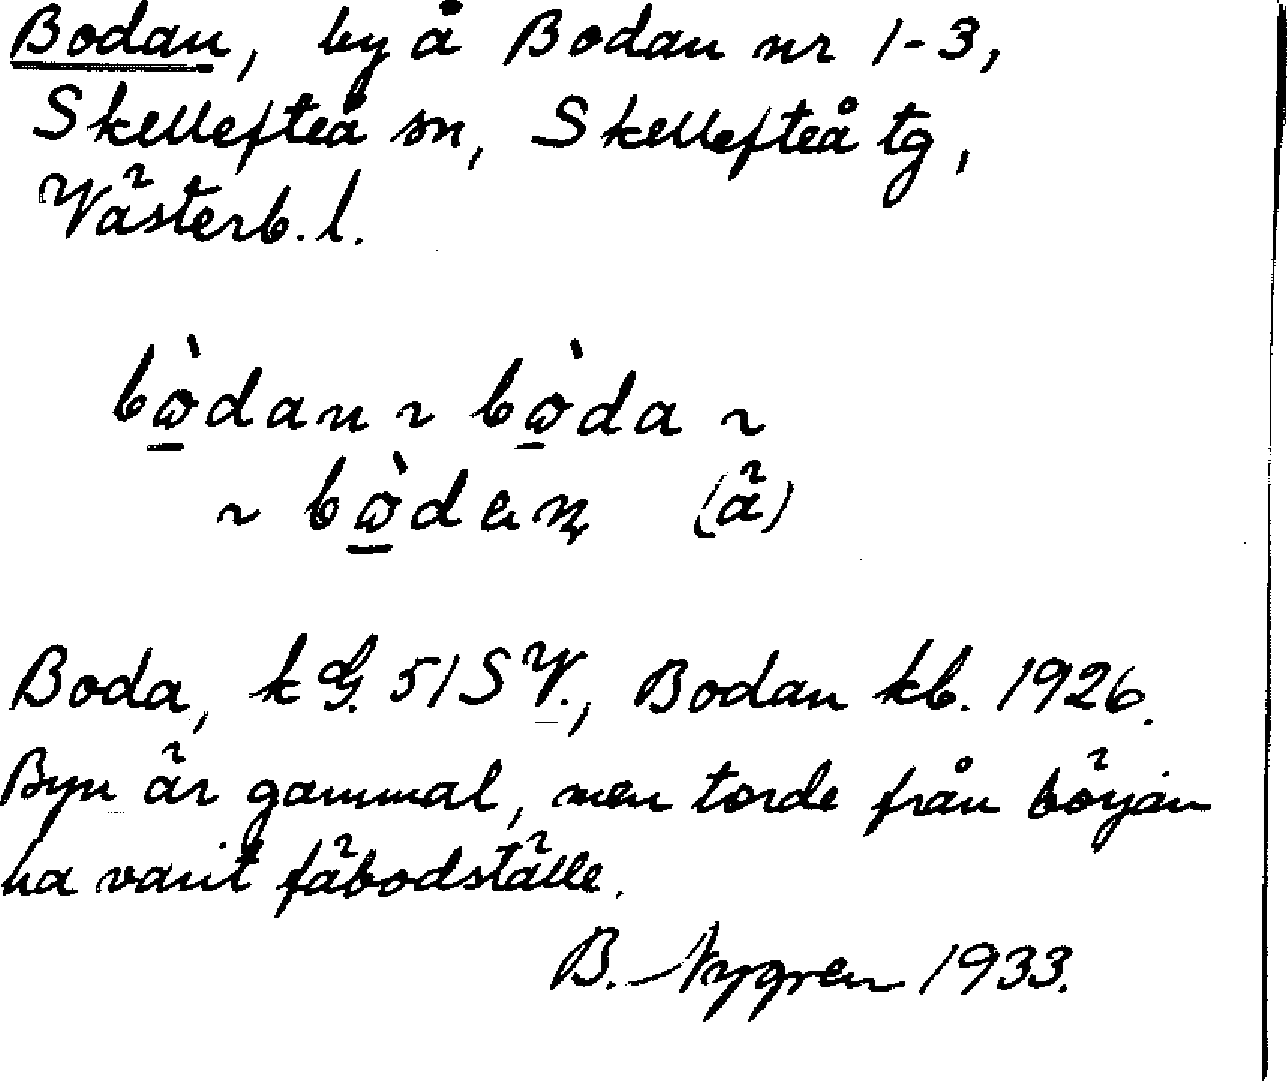 Bodan, by å Bodan nr 1-3,
Skellefteå sn, Skellefteå tg,
Västerb. l.
bὼ̱dan ~ bὼ̱da ~
~ bὼ̱dan̥ (ä)
Boda, k G. 51 SV., Bodan kb. 1926.
Byn är gammal, men torde från början
ha varit fäbodställe.
B. Nygren 1933.